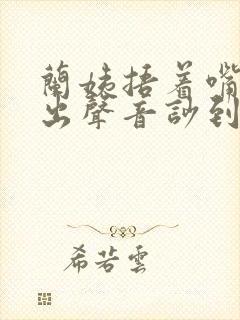 蘭姨捂着嘴
出聲音訬到
希若雲